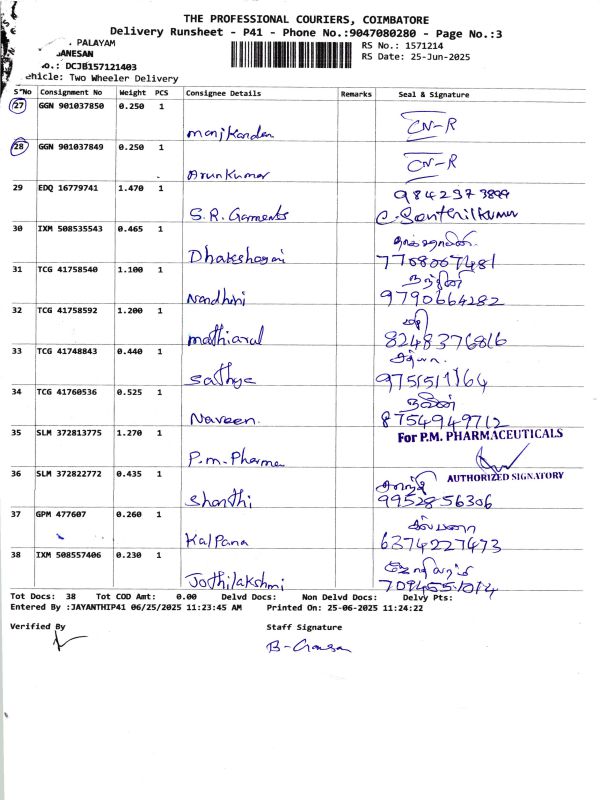 THE PROFESSIONAL COURIERS, COIMBATORE
Delivery Runsheet - P41 - Phone No.:9047080280 - Page No.:3
PALAYAM
RS No.: 1571214
GANESAN
RS Date: 25-Jun-2025
No.: DCJB157121403
ehicle: Two Wheeler Delivery
S"No Consignment No Weight PCS Consignee Details Remarks Seal & Signature
27 GGN 901037850 0.250 1 Manikandan CN-R
28 GGN 901037849 0.250 1 Arunkumar CN-R
29 EDQ 16779741 1.470 1 S.R. Garments
C. Senthilkumar
30 IXM 508535543 0.465 1
7708067481
31 TCG 41758540 1.100 1 Nandhini நந்தினி
9790664282
32 TCG 41758592 1.200 1 mathiaral மதி
8248376816
33 TCG 41748843 0.440 1 Sathya சத்யா
34 TCG 41760536 0.525 1 Naveen. நவீன்
8754949712
35 SLM 372813775 1.270 1 P.m. Pharma
For P.M. PHARMACEUTICALS
AUTHORIZED SIGNATORY
36 SLM 372822772 0.435 1 Shanthi சாந்தி
9952856306
37 GPM 477607 0.260 1 Kalpana கல்பனா
6374227473
38 IXM 508557406 0.230 1 Jothilakshmi
7094551014
Tot Docs: 38 Tot COD Amt: 0.00 Delvd Docs: Non Delvd Docs: Delvy Pts:
Entered By :JAYANTHIP41 06/25/2025 11:23:45 AM Printed On: 25-06-2025 11:24:22
Verified By Staff Signature